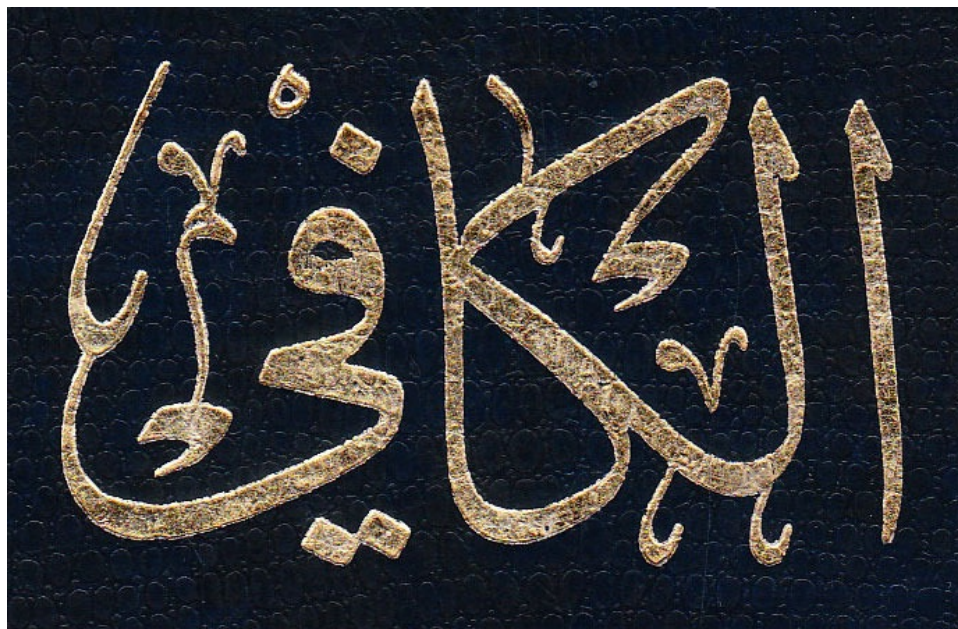 الكافي